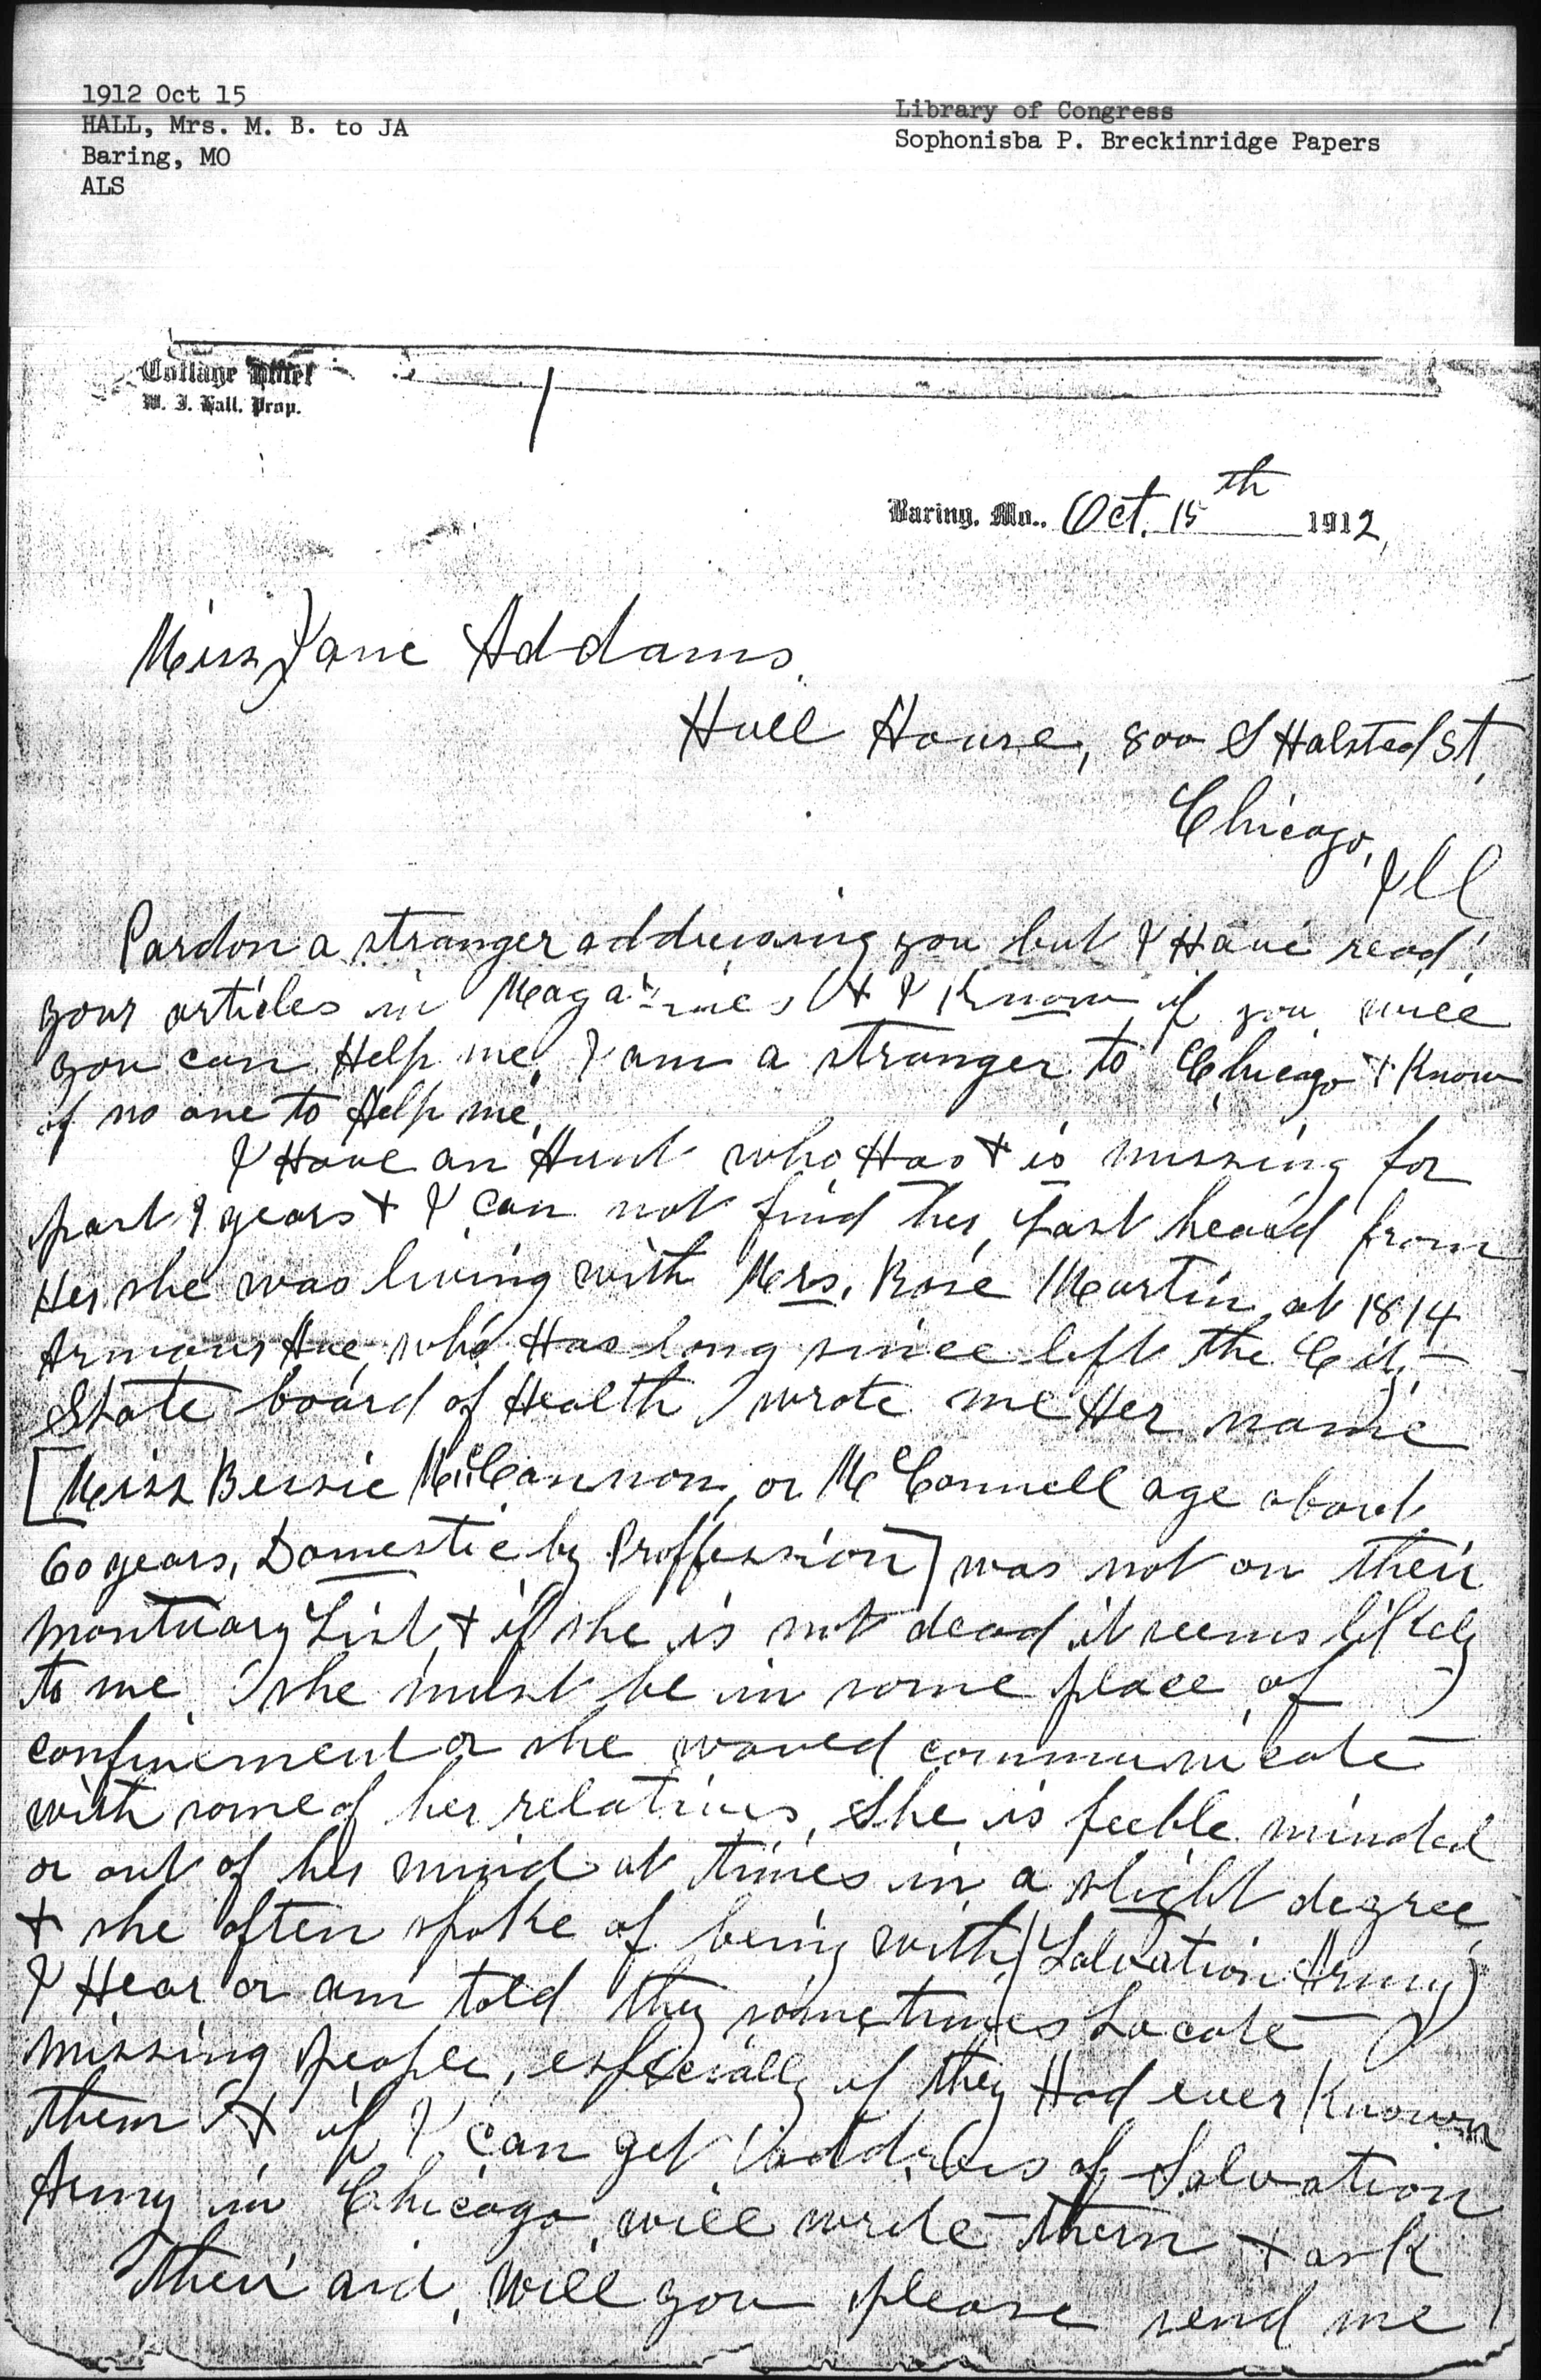 1912 Oct 15
HALL, Mrs. M. B. to JA
Baring, MO
ALS
Library of Congress
Sophonisba P. Breckinridge Papers
Cottage Hotel
W. J. Hall, Prop.
1
Baring, Mo., Oct. 15th 1912,
Miss Jane Addams.
Hull House, 800 S Halsted St,
Chicago,
Ill
Pardon a stranger addressing you but I Have read
your articles in Magazines & I Know if you will
you can Help me, I am a stranger to Chicago & Know
of no one to Help me.
I Have an Aunt who Has & is missing for
past 9 years & I can not find her, Last heard from
Her she was living with Mrs. Rose Martin, at 1814
Armour Ave, who Has long since left the City,
State board of Health wrote me Her name
[Miss Bessie McCannon, or McConnell age about
60 years, Domestic by Proffession] was not on their
mortuary List, & if she is not dead it seems likely
to me she must be in some place of
confinement or she would communicate
with some of her relatives, She is feeble minded
or out of her mind at times in a slight degree,
& she often spoke of being with (Salvation Army)
I Hear or am told they sometimes Locate
missing people, especially if they Had ever Known
them & if I can get address of Salvation
Army in Chicago, will write them & ask
their aid, will you please send me